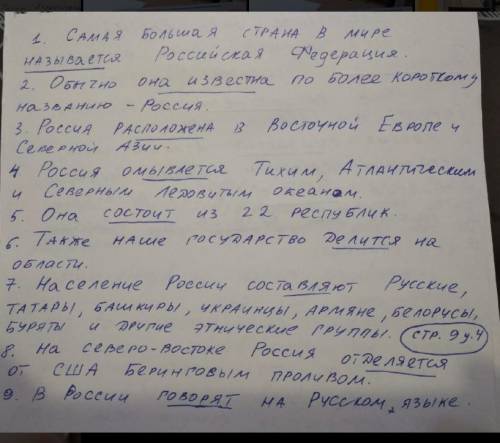 1. Самая большая страна в мире
называется Российская Федерация.
2. Обычно она известна по более короткому
названию - Россия.
3. Россия расположена в Восточной Европе и
Северной Азии.
4 Россия омывается Тихим, Атлантическим
и Северным Ледовитым океаном.
5. Она состоит из 22 республик.
6. Также наше государство делится на
области.
7. Население России составляют Русские,
татары, башкиры, украинцы, армяне, белорусы,
буряты и другие этнические группы. стр. 9 у.4
8. На северо-востоке Россия отделяется
от США Беринговым проливом.
9. В России говорят на Русском языке.